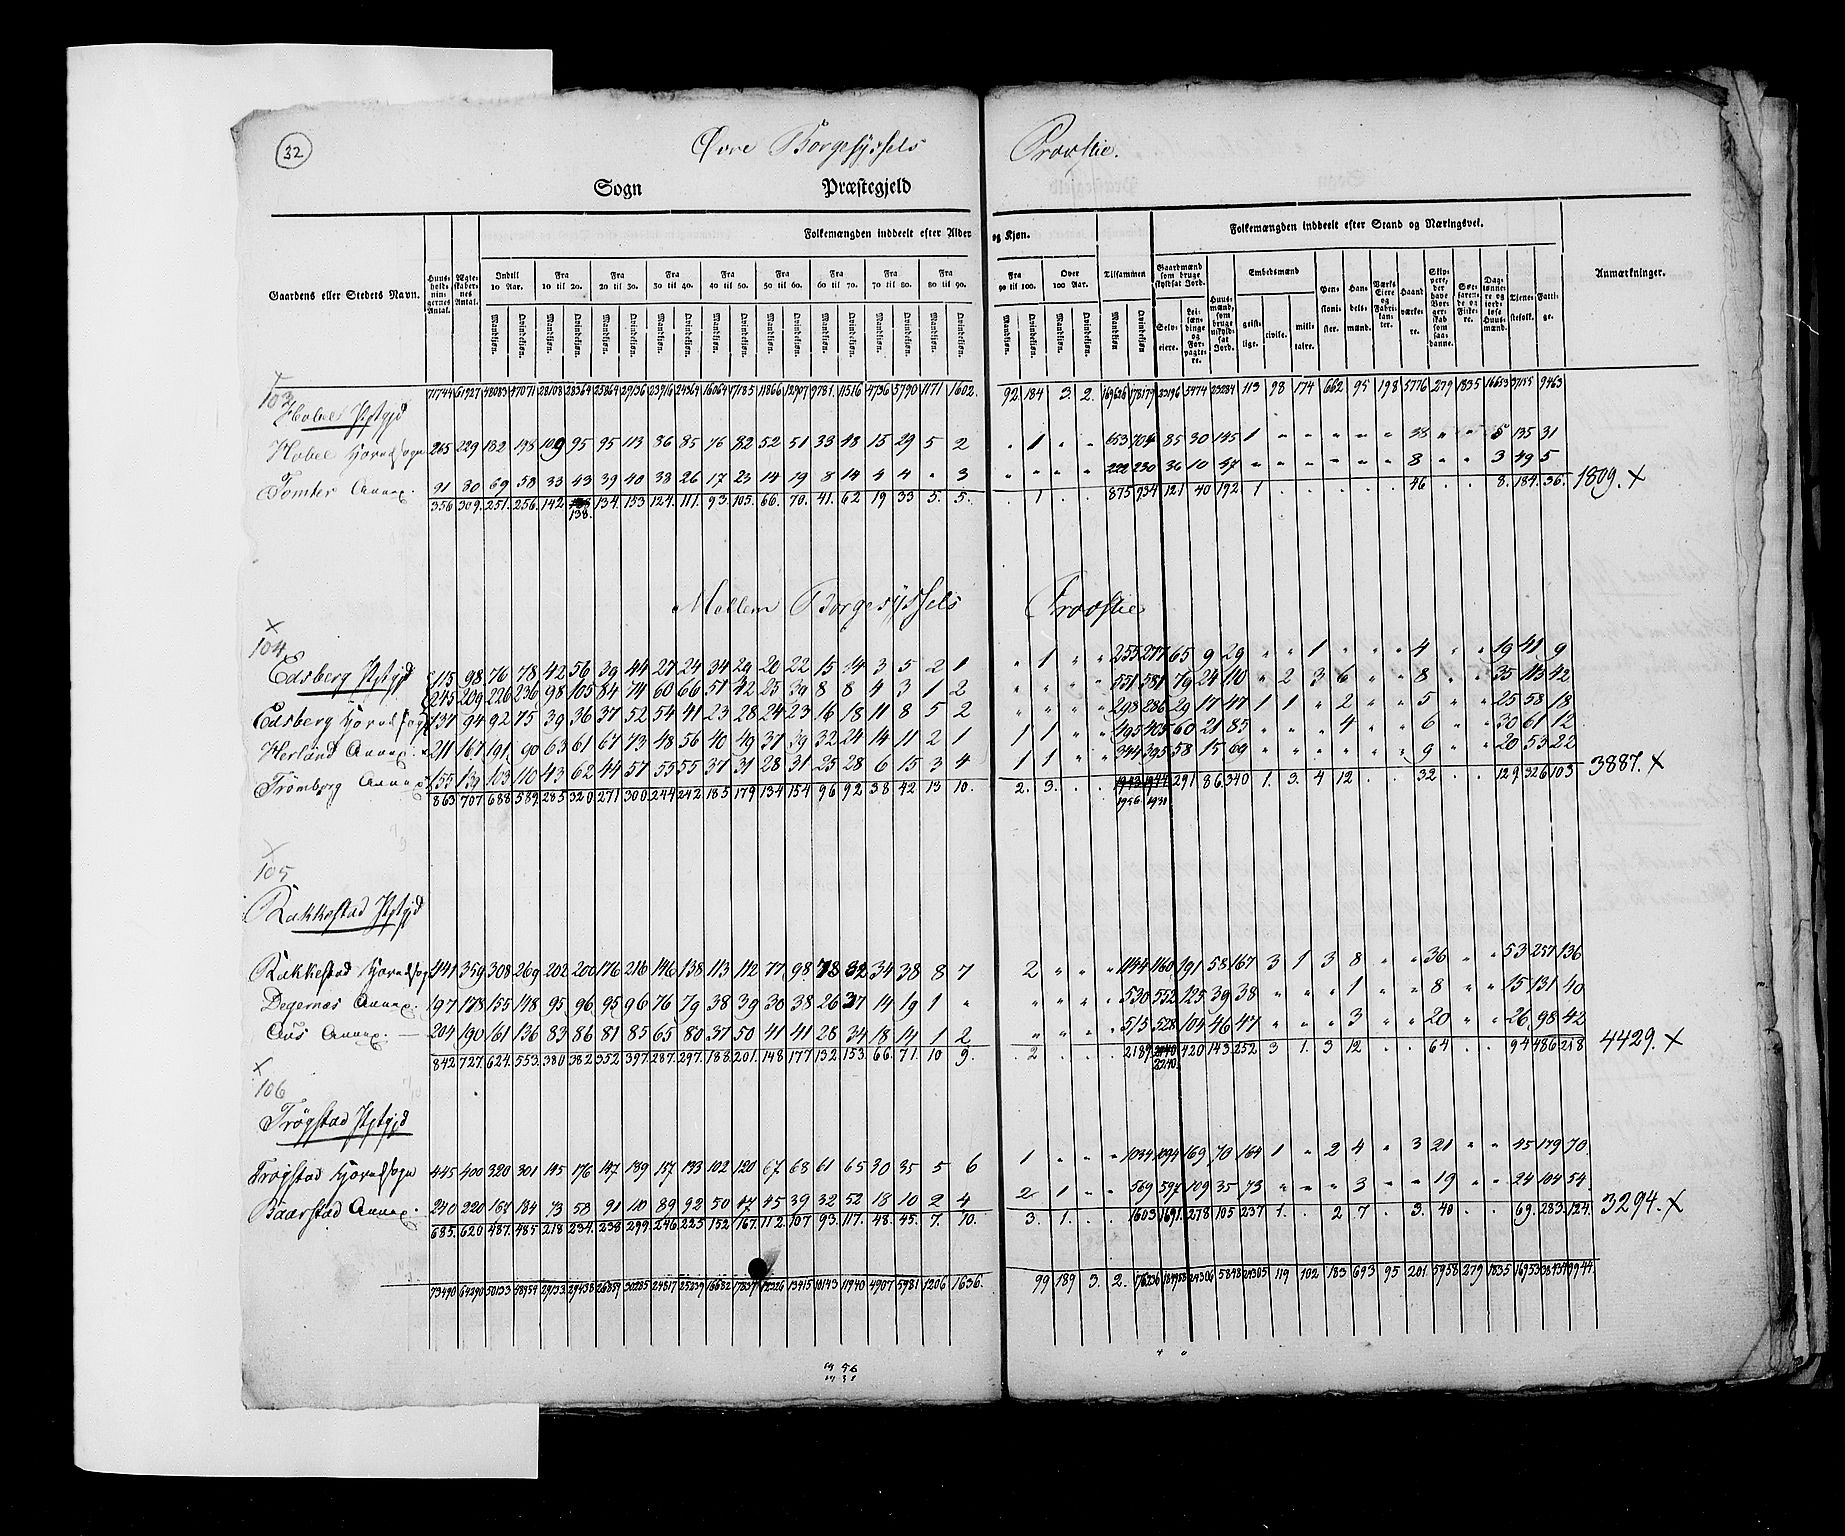 32
Øvre Borgesyssels Provstie.
Sogn Præstegjeld
Gaardens eller Stedets Navn.
Huus-holdnin-gernes Antal.
Ægte-skaber-nes Antal.
Folkemængden inddeelt efter Alder og Kjøn.
Indtil 10 Aar.
Fra 10 til 20.
Fra 20 til 30.
Fra 30 til 40.
Fra 40 til 50.
Fra 50 til 60.
Fra 60 til 70.
Fra 70 til 80.
Fra 80 til 90.
Fra 90 til 100.
Over 100 Aar.
Tilsammen
Mandkiøn. Qvindekiøn.
Folkemængden inddeelt efter Stand og Næringsvei.
Gaardmænd som bruge skyldsat Jord.
Selv-eiere.
Lei-lændinge og For-pagte-re.
Huus-mænd, som bruge uskyld-sat Jord.
Embedsmænd
geist-lige. civile. mili-taire.
Pen-sioni-ster.
Han-dels-mænd.
Værks Eiere og Fabri-kan-ter.
Haand-værke-re.
Skip-pere, der have Bor-ger-skab som saa-danne.
Søe-farende og Fiske-re.
Dag-lønne-re og jordløse Huus-mænd.
Tjene-stefolk.
Fatti-ge.
Anmærkninger.
71744 61927 48083 47071 28108 28364 25864 29136 23916 24364 16064 17185 11866 12907 9781 11516 4736 5790 1171 1602. 92 184 3. 2. 169626 178179 23196 5474 23284 113 98 174 662 95 198 5776 279 1835 16653 37155 9463
103
Hobel Pstgjd
Hobel Hovedsogn 265 229 182 198 109 95 95 113 86 85 76 82 52 51 33 48 15 29 5 2 " 1 " " 653 704 85 30 145 1 " " " " " 38 " " 5 135 31
Tomter Annex. 91 80 69 58 33 43 39 40 38 26 17 23 14 19 8 14 4 4 " 3 " " " " 222 230 36 10 47 " " " " " " 8 " " 3 49 5
356 309. 251. 256. 142 138. 134. 153 124. 111. 93. 105. 66. 70. 41. 62 19 33 5. 5. . 1 . . 875 934 121 40 192. 1 . . . . . 46 . . 8. 184. 36. 1809. X
Mellem Borgesyssels Provstie
X
104
Edsberg Pstgjd 115 98 76 78 42 56 39 44 27 24 34 29 20 22 15 14 3 5 2 1 " 1 " " 255 277 65 9 29 " " 1 " " " 4 " " 19 41 9
245 209 226 236 98 105 84 74 60 66 51 42 25 39 8 8 4 3 1 2 " " " " 551 581 79 24 110 " 2 3 6 " " 8 " " 35 113 42
Edsberg Hovedsogn 137 94 92 75 39 36 37 52 54 41 23 28 24 23 16 18 11 8 5 2 " " " " 293 236 29 17 47 1 1 " 2 " " 5 " " 25 58 18
Herland Annex. 211 167 191 90 63 61 67 73 48 56 40 49 37 39 32 24 14 11 2 1 1 1 " " 495 405 60 21 85 " " " 4 " " 6 " " 30 61 12
Trømborg Annex 155 139 103 110 43 62 44 57 55 55 37 31 28 31 25 28 6 15 3 4 1 1 " " 344 395 58 15 69 " " " " " " 9 " " 20 53 22
863 707 688 589. 285 320 271 300 244 242 185 179 134 154 96 92 38 42 13 10. 2. 3. . . 1943 1944 291 86 340 1. 3. 4 12 . . 32 . . 129 326 103 3887. X
1956. 1931
X
105
Rakkestad Pstgjd
Rakkestad Hovedsogn 441 359 308 269 202 200 176 216 146 138 113 112 77 98 78 82 34 38 8 7 2 " " " 1144 1160 191 58 167 3 1 3 8 " " 36 " " 53 257 136
Degernæs Annex. 197 178 155 148 95 96 95 96 76 79 38 39 30 38 26 37 14 19 1 " " " " " 530 552 125 39 38 " " " 1 " " 8 " " 15 131 40
Øus Annex. 204 190 161 136 83 86 81 85 65 80 37 50 41 41 28 34 18 14 1 2 " " " " 515 528 104 46 47 " " " 3 " " 20 " " 26 98 42
842 727. 624. 553. 380 382 352 397. 287. 297. 188. 201. 148 177 132 153. 66. 71. 10 9. 2 . . . 2189 2240 420 143. 252 3 1. 3 12 . . 64 . . 94 486 218 4429. X
2240.
X
106
Trøgstad Pstgjd
Trøgstad Hovedsogn 445 400 320 301 145 176 147 189 157 133 102 120 67 68 61 65 30 35 5 6 1 " " " 1034 1094 169 70 164 1 " 2 4 " 3 21 " " 45 179 70
Baarstad Annex. 240 220 167 184 73 58 91 110 89 92 50 47 45 39 32 52 18 10 2 4 2 1 " " 569 597 109 35 73 " " " 3 " " 19 " " 24 104 54
685. 620 487. 485 218 234. 238 299 246 225 152 167. 112 107 93. 117. 48. 45. 7. 10. 3. 1. . . 1603 1691. 278 105 237 1. . 2 7 . 3. 40 . . 69. 283. 124. 3294. X
73490 64290 50133 48954 29133 29438 26859 30285 24817 25239 16682 17837 12326 13415 10143 11940 4907 5981 1206 1636. 99 189 3. 2. 24306 5848 24305 119 102 183 693 95 201 5958 279 1835 16953 38434 9944